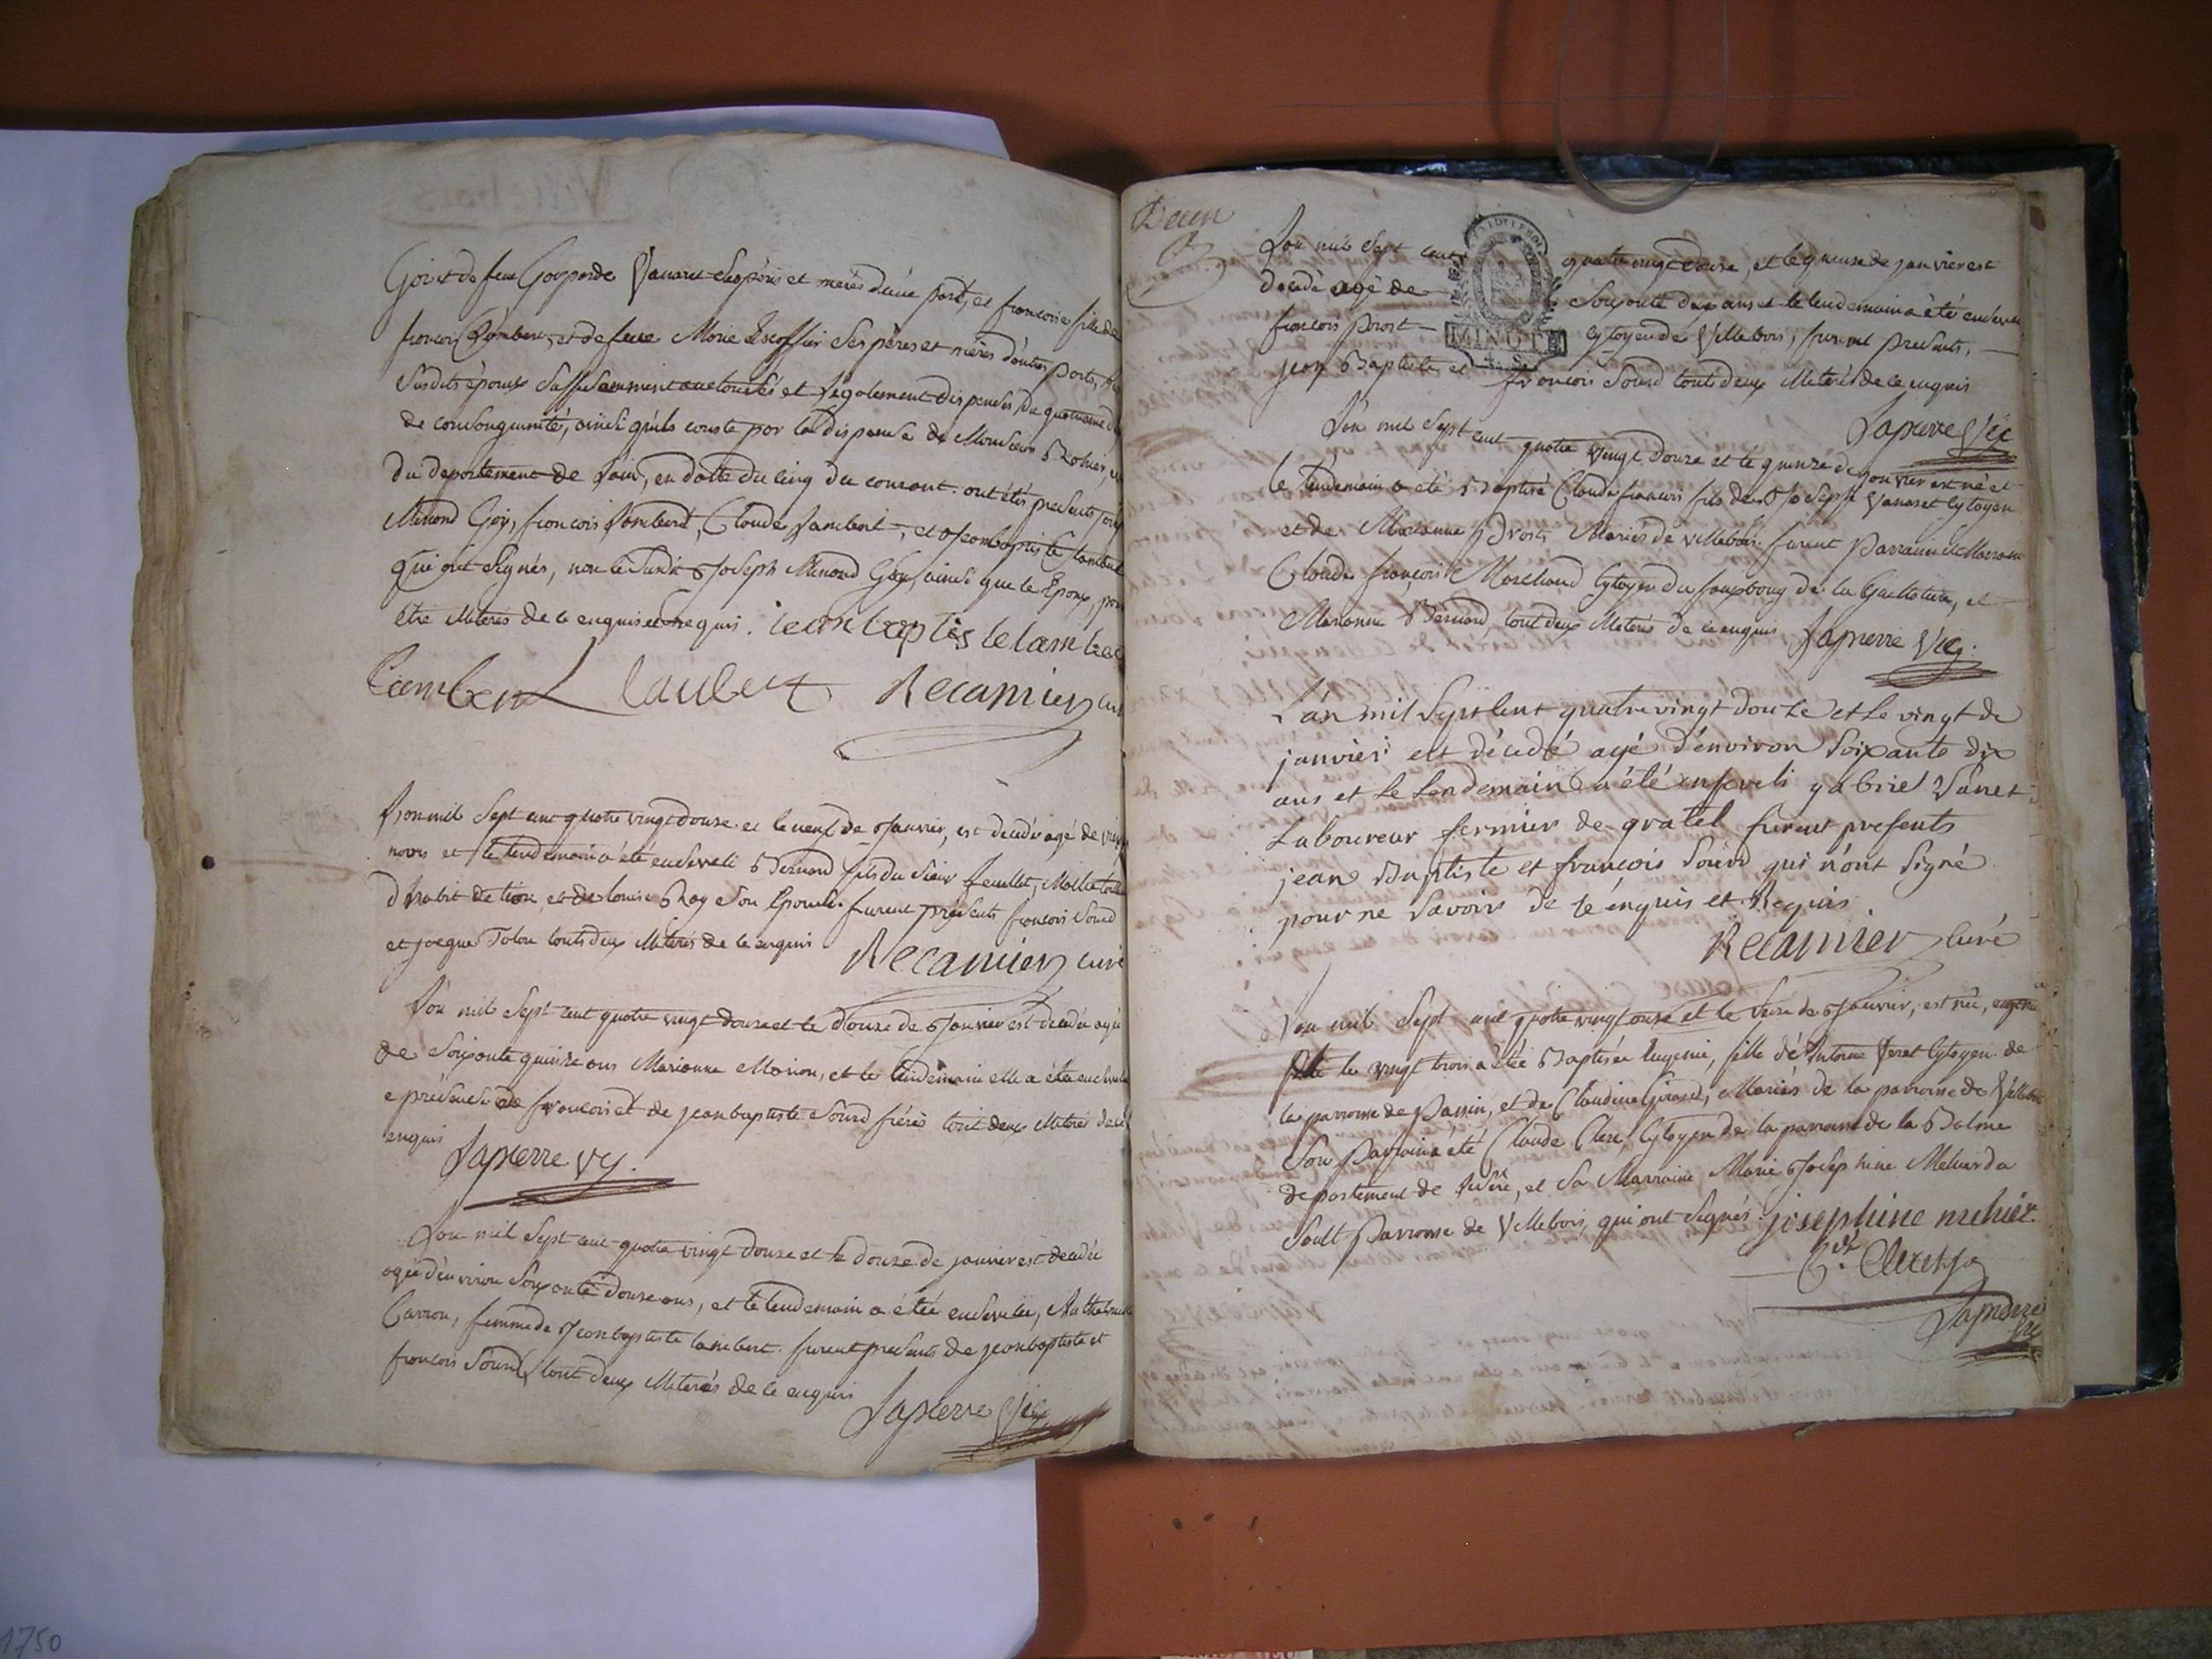 Goi et de feue Gasparde Vanaret ses péres et méres d'une part, et francoise fille de
francois Lambert, et de feue Marie Escoffier ses péres et méres d'autre part,
susdits époux suffisamment autorisés et légalement dispensés du quatrieme d
de consanguinité, ainsi qu'ils conste par la dispense de Monsieur
du departement de l'ain, en datte du cinq du courant. ont étés presents
Minand Goy, francois Lambert, Claude Lambert, et Jeanbaptiste Lambert
qui ont signés, non le susdit Joseph Minand Goy, ainsi que le Epoux, pour
etre iliterés de ce enquis et requis. jean baptis te lambe
Lambert Lambert Recamier curé
L'an mil sept cent quatre vingt douze et le neuf de Janvier, est decedé agé de
mois et le lendemain a été enseveli Bernard fils du sieur feuillet,
D'habit de tion, et de louise Ray son Epouse. furent presents francois Sourd
et jacque Tolon touts deux iliterés de ce enquis
Recamier curé
L'an mil sept cent quatre vingt douze et le douze de Janvier est decedée agée
de soixante quinze ans Marianne Marion, et le lendemain elle a étée ensevelie
e présence de francois et de jeanbaptiste Sourd fréres tout deux iliterés de ce
enquis
Lapierre vic.
L'an mil sept cent quatre vingt douze et le douze de janvier est decedée
agée d'environ soixante douze ans, et le lendemain a étée ensevelie,
Carron, femme de Jeanbaptiste lambert. furent presents de jeanbaptiste et
francois Sourd, tout deux iliterés de ce enquis
Lapierre Vic.
L'an mil sept cent quatre vingt douze, et le quinze de janvier est
decedé agé de soixante dix ans et le lendemain a été enseveli
francois prost cytoyen de Villebois, furent presents,
MINUTE
4. S.
jean Baptiste et francois Sourd touts deux iliterés de ce enquis
Lapierre Vic
L'an mil sept cent quatre vingt douze et le quinze de janvier est né et
le lendemain a été Baptisé Claude francois fils de Joseph Vanaret Cytoyen
et de Marianne Prost, Mariés de villebois. furent parrain et Marraine
Claude françois Marchand Cytoyen du fauxbourg de la Guillotiere, et
Marianne Bernard, tout deux iliterés de ce enquis Lapierre Vic.
L'an mil sept cent quatre vingt douze et le vingt de
janvier est décedé agé d'environ soixante dix
ans et le lendemain a été enseveli gabriel Vanet
Laboureur fermier de gratel furent presents
jean Baptiste et françois sourd qui n'ont signé
pour ne savoir de ce enquis et Requis
Recamier curé
L'an mil sept cent quatre vingt onze et le seize de Janvier, est née,
le vingt trois a étée Baptisée Eugenie, fille d'Antoine Veret Cytoyen de
la parroisse de Passin, et de Claudine Girard, Mariés de la parroisse de Villebois
Son Parrain a été Claude Clerc, Cytoyen de la parroisse de la Balme
departement de l'isere, et sa Marraine Marie Josephine Mehier du
Sault Parroisse de Villebois, qui ont signés. josephine mehier.
Lapierre
vic